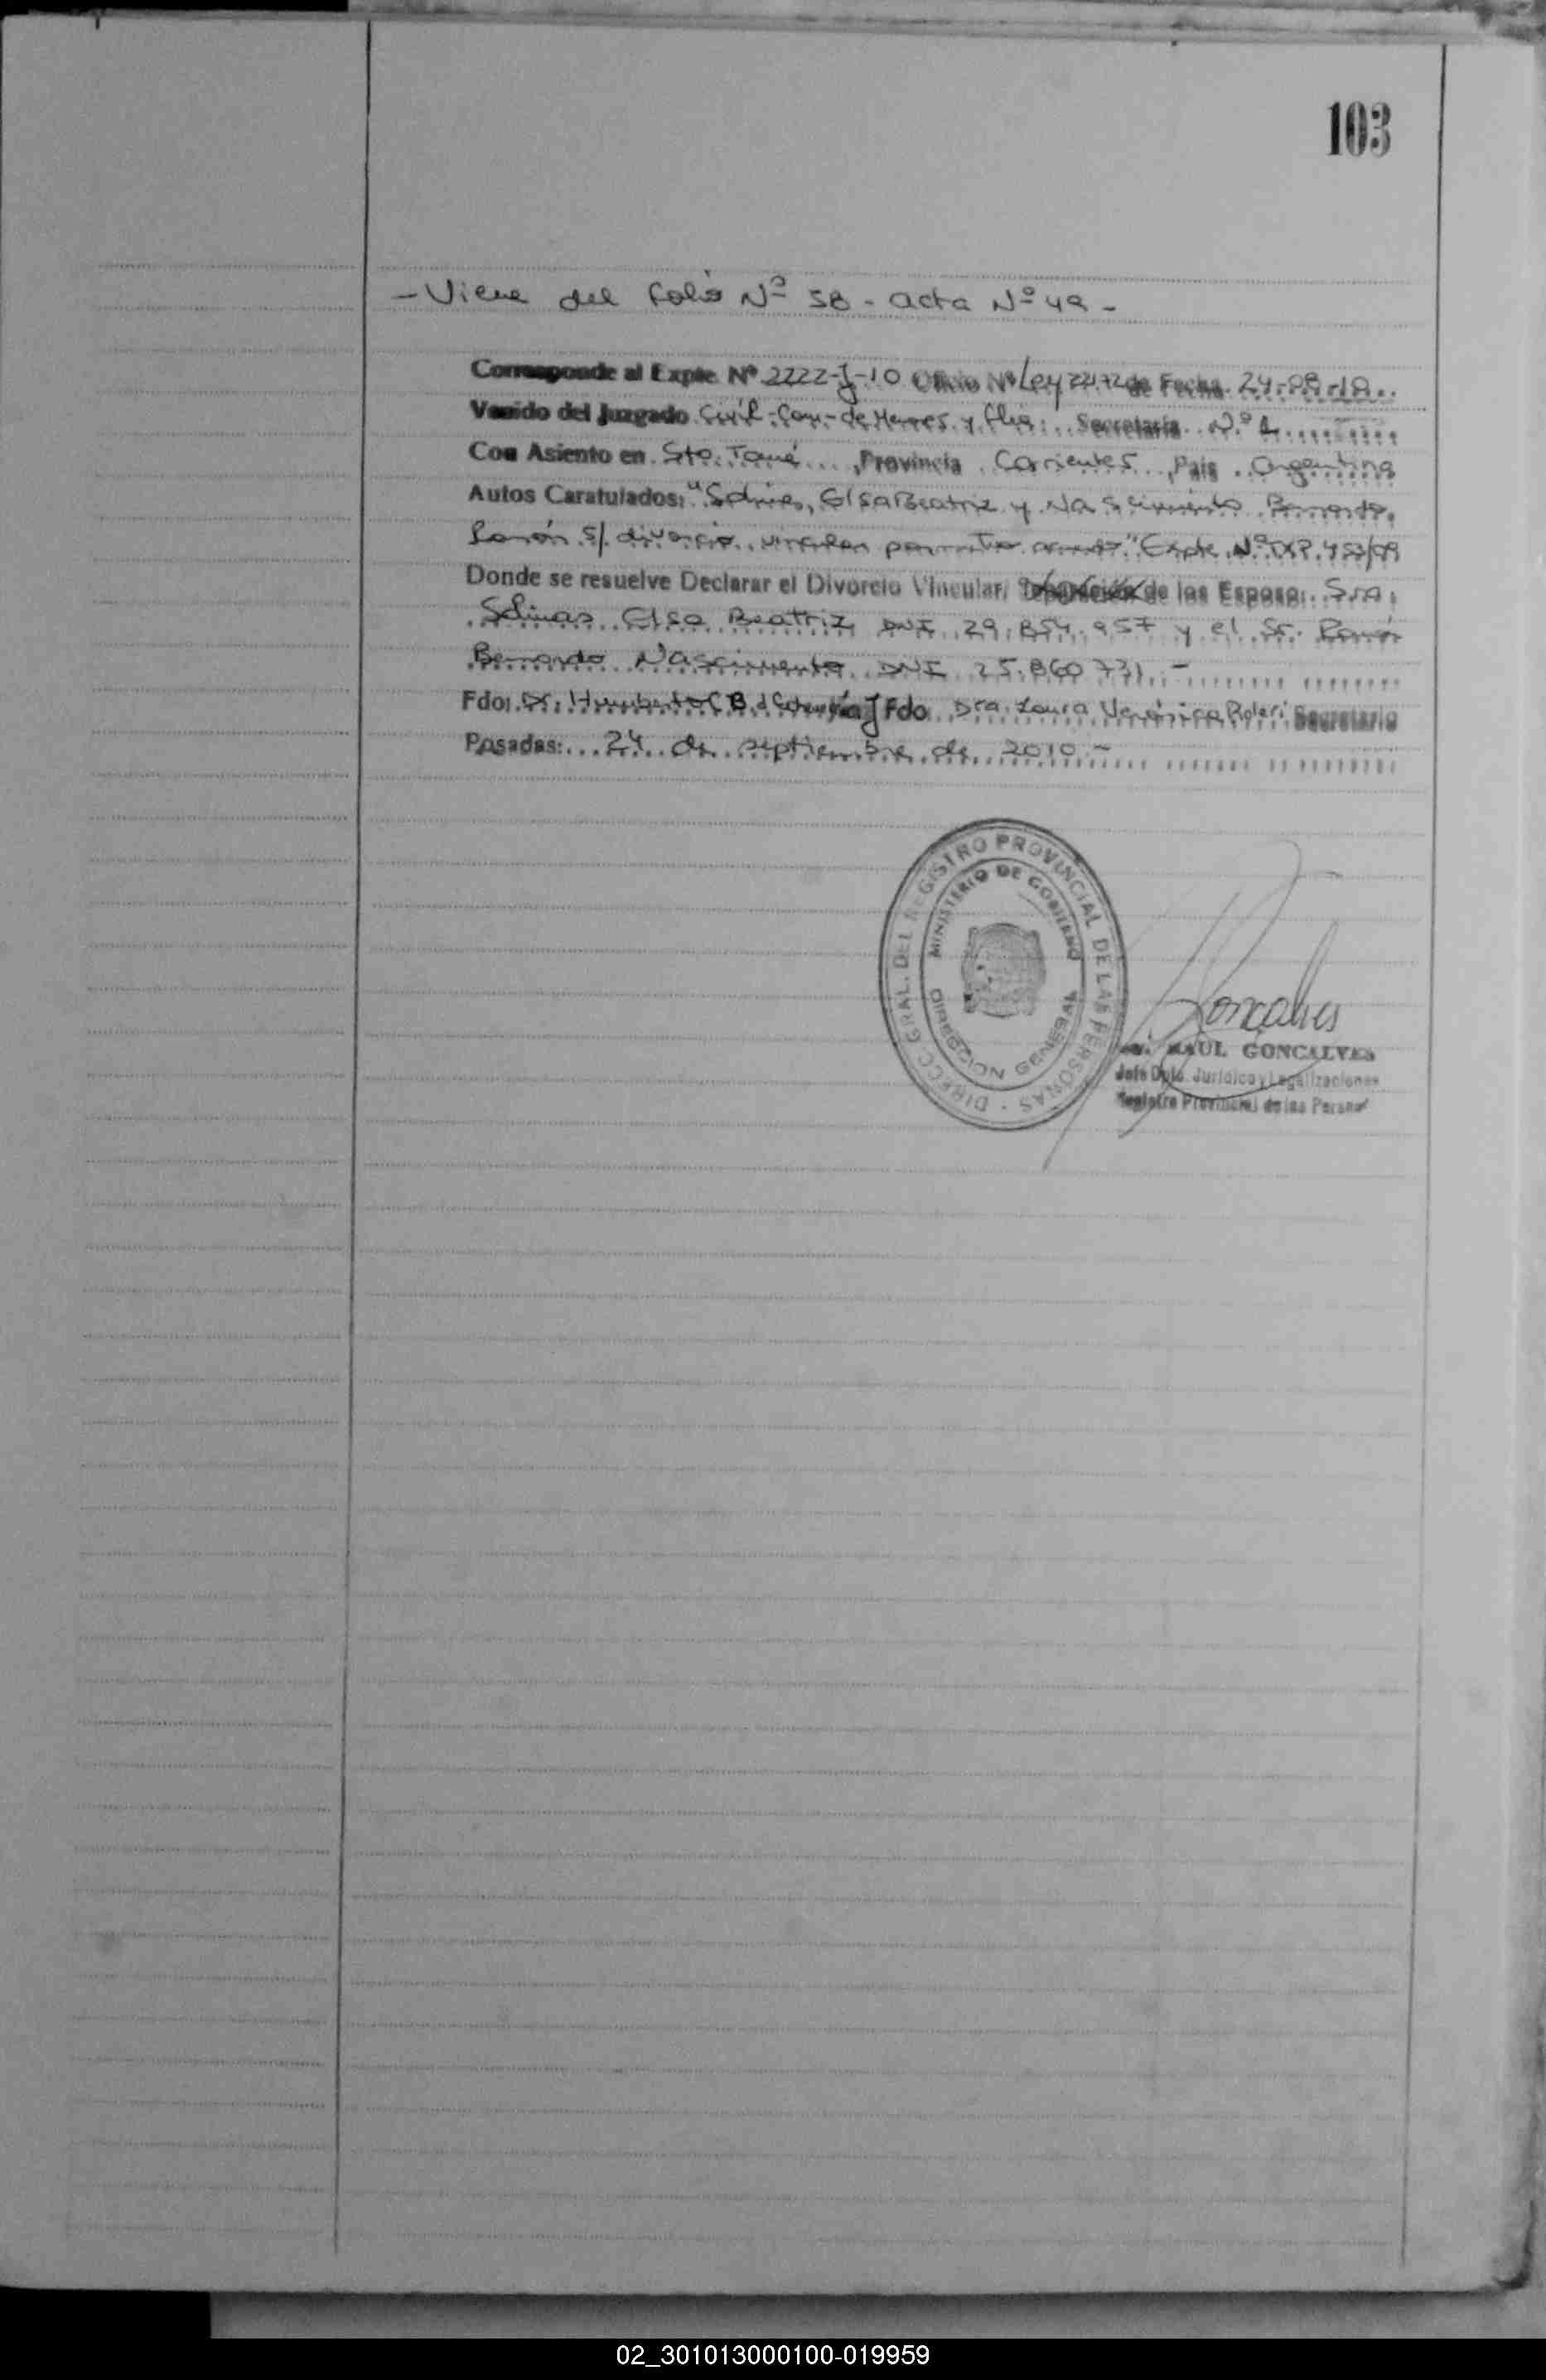 103
- Viene del folio Nº 58 - acta Nº 49 -
Corresponde al Expte Nº 2222-J-10 Oficio Nº Ley 22172 de Fecha 24-08-10
Venido del Juzgado Civil-Com-de Menores y flia. Secretaria Nº 1
Con Asiento en Sto. Tomé, Provincia Corrientes, Pais Argentina
Autos Caratulados: "Salinas, Elsa Beatriz y Nascimiento Bernardo
Ramón s/ divorcio vincular" Expte Nº
Donde se resuelve Declarar el Divorcio Vincular/ de los Esposo: Sra.
Salinas Elsa Beatriz DNI 29.854.957 y el Sr. Ramón
Bernardo Nascimiento DNI 25.860.731.-
Fdo: Dr. Humberto Fdo Dra. Laura Verónica Secretario
Posadas: 24 de septiembre de 2010.-
DIRECC. GRAL. DEL REGISTRO PROVINCIAL DE LAS PERSONAS
MINISTERIO DE GOBIERNO
DIRECCION GENERAL
Goncalves
RAUL GONCALVES
Jefe Dpto. Juridico y Legalizaciones
Registro Provincial de las Personas
02_301013000100-019959